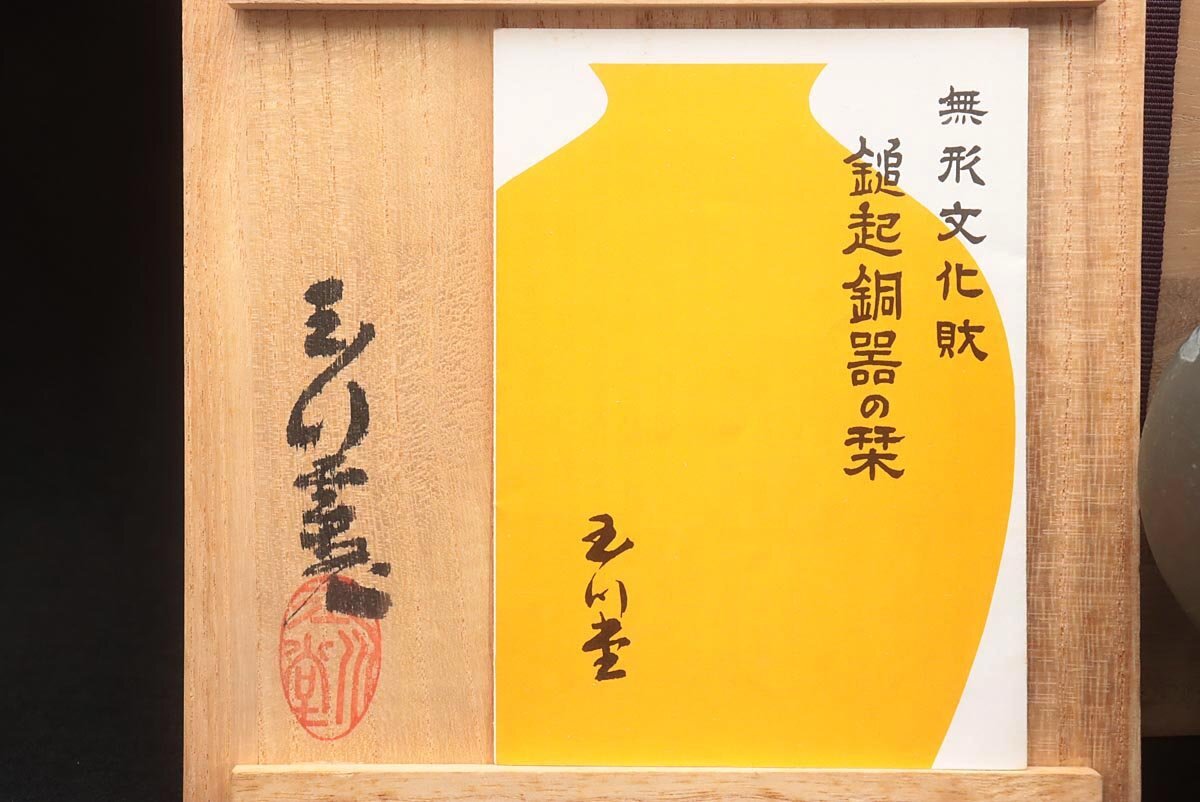 無形文化財
鎚起銅器の栞
玉川堂
玉川堂
玉川堂